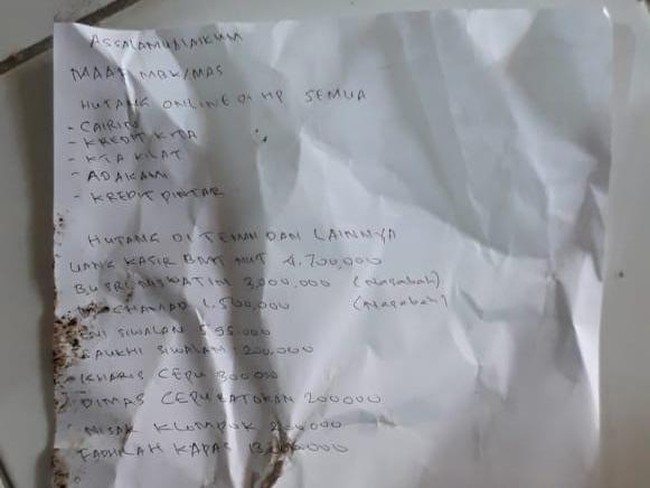 ASSALAMUALAIKUM
MAAF MBK/MAS
HUTANG ONLINE DI HP SEMUA
- CAIRIN
- KREDIT KITA
- KTA KILAT
- ADAKAMI
- KREDIT PINTAR
HUTANG DI TEMAN DAN LAINNYA
UANG KASIR BMT NUT 4.700,000
BU SRI 3,000,000 (Nasabah)
1.500,000 (Nasabah)
ENI SIWALAN 595.000
SAUKHI SIWALAN 200.000
KHARIS CEPU 300000
DIMAS CEPU BATOKAN 200000
NISAK KLOMPOK 200000
FADHILAH KAPAS